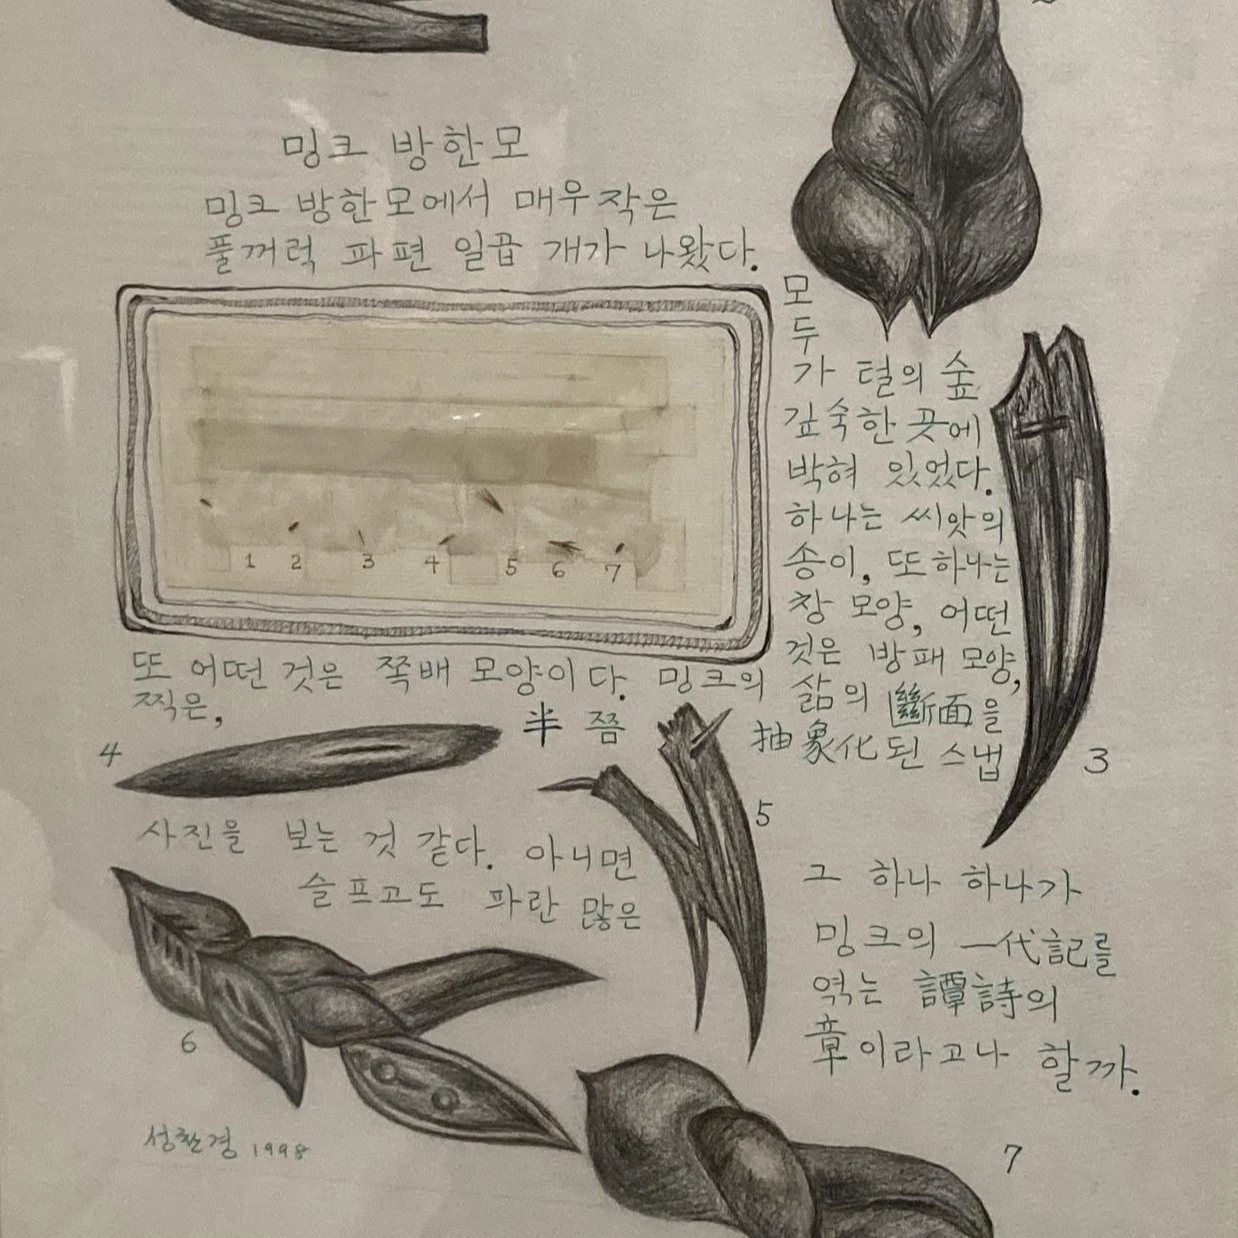 밍크 방한모
밍크 방한모에서 매우작은
풀꺼럭 파편 일곱 개가 나왔다.
모
두
가 털의 숲
깊숙한 곳에
박혀 있었다.
하나는 씨앗의
송이, 또하나는
창 모양, 어떤
것은 방패 모양,
또 어떤 것은 쪽배 모양이다. 밍크의 삶의 斷面을
찍은, 半 쯤 抽象化된 스냅
사진을 보는 것 같다. 아니면
슬프고도 파란 많은
그 하나 하나가
밍크의 一代記를
엮는 譚詩의
章이라고나 할까.
1 2 3 4 5 6 7
3
4
5
6
7
성찬경 1998